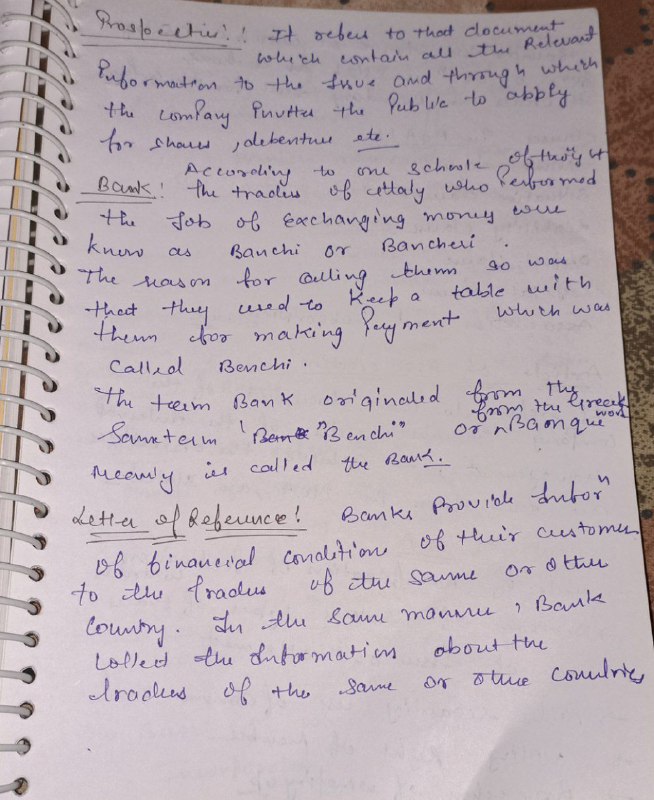 Prospectus:: It refers to that document
which contain all the Relevant
Information to the Issue and through which
the company Invites the Public to apply
for shares, debenture etc.
According to one schools of thought
Bank: The traders of Italy who Performed
the Job of exchanging money were
know as Banchi or Bancheri.
The reason for calling them so was
that they used to keep a table with
them for making Payment which was
called Benchi.
The term Bank originated from the
Same term "Benchi" or from the Greek word "Banque
Meanly is called the Bank.
Letter of Reference! Banks Provide Inforⁿ
of financial conditions of their customer
to the traders of the same or other
Country. In the same manner, Bank
collect the Information about the
traders of the same or other countries